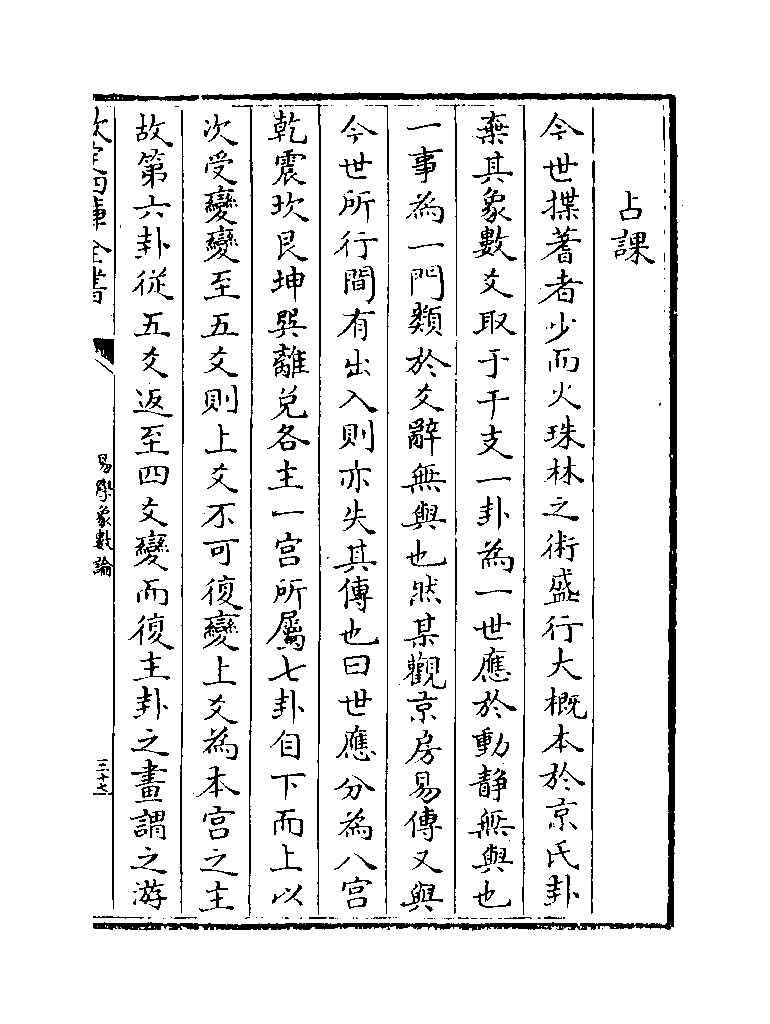 占課
今世揲蓍者少而火珠林之術盛行大概本於京氏卦
棄其象數爻取于干支一卦為一世應於動靜無與也
一事為一門類於爻辭無與也然某觀京房易傳又與
今世所行間有出入則亦失其傳也曰世應分為八宮
乾震坎艮坤巽離兌各主一宮所屬七卦自下而上以
次受變變至五爻則上爻不可復變上爻為本宮之主
故第六卦從五爻返至四爻變而復主卦之畫謂之游
欽定四庫全書
易學象數論
三十七